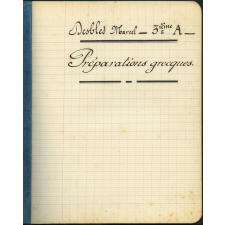 Desbled Marcel — 3ème A —
Préparations grecques.